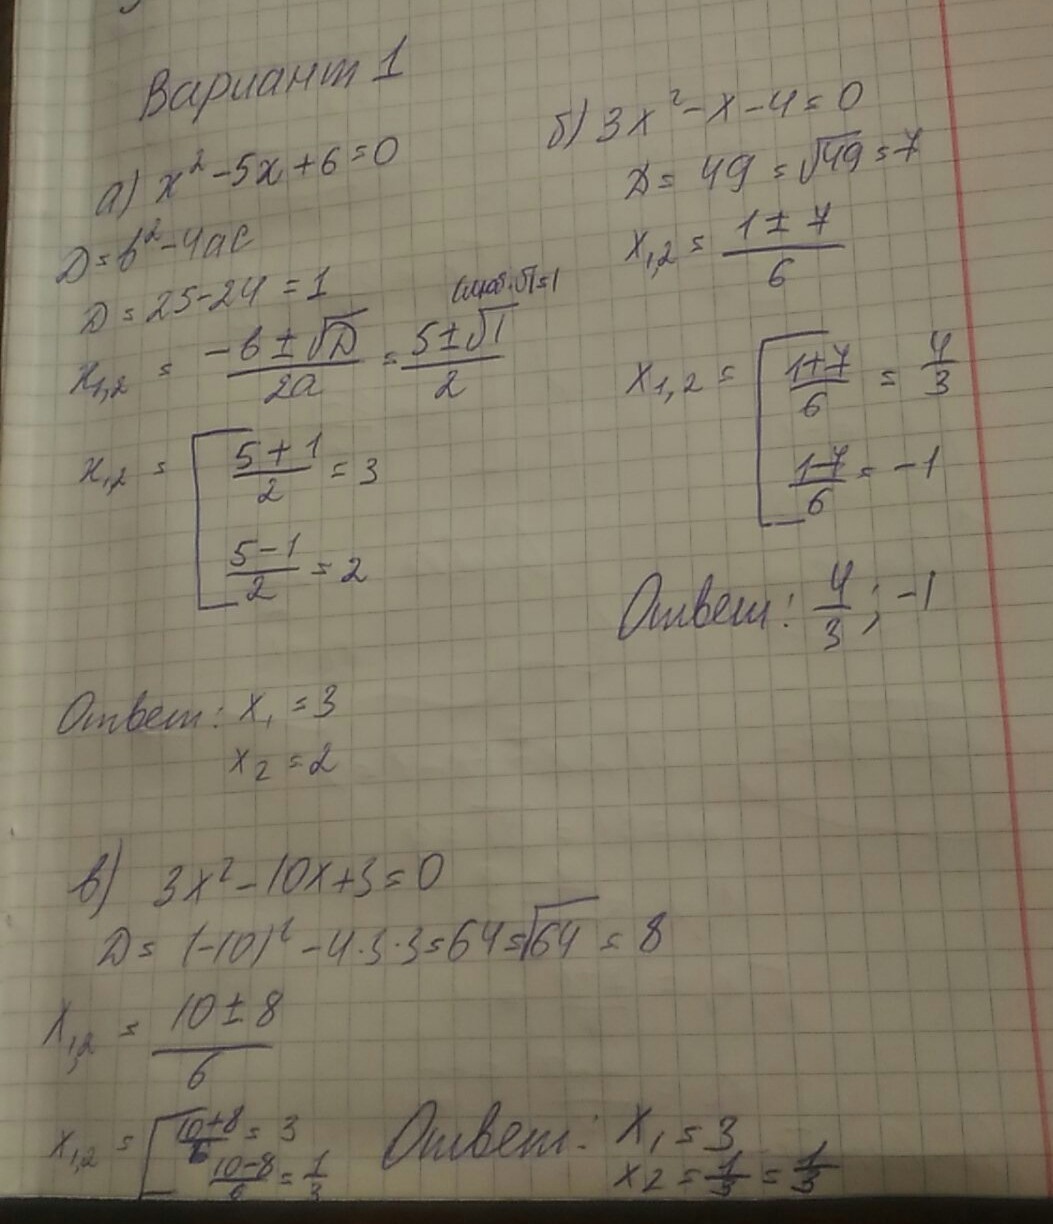 Вариант 1
а) x² - 5x + 6 = 0
D = b² - 4ac
D = 25 - 24 = 1
x1,2 = (-b ± √D)/2a = (5 ± √1)/2
√1 = 1
x1,2 = [ (5 + 1)/2 = 3
(5 - 1)/2 = 2
Ответ: x₁ = 3
x₂ = 2
б) 3x² - x - 4 = 0
D = 49 = √49 = 7
x1,2 = (1 ± 7)/6
x1,2 = [ (1+7)/6 = 4/3
(1-7)/6 = -1
Ответ: 4/3 ; -1
в) 3x² - 10x + 3 = 0
D = (-10)² - 4·3·3 = 64 = √64 = 8
x1,2 = (10 ± 8)/6
x1,2 = [ (10+8)/6 = 3
(10-8)/6 = 1/3
Ответ: x₁ = 3
x2 = 1/3 = 1/3